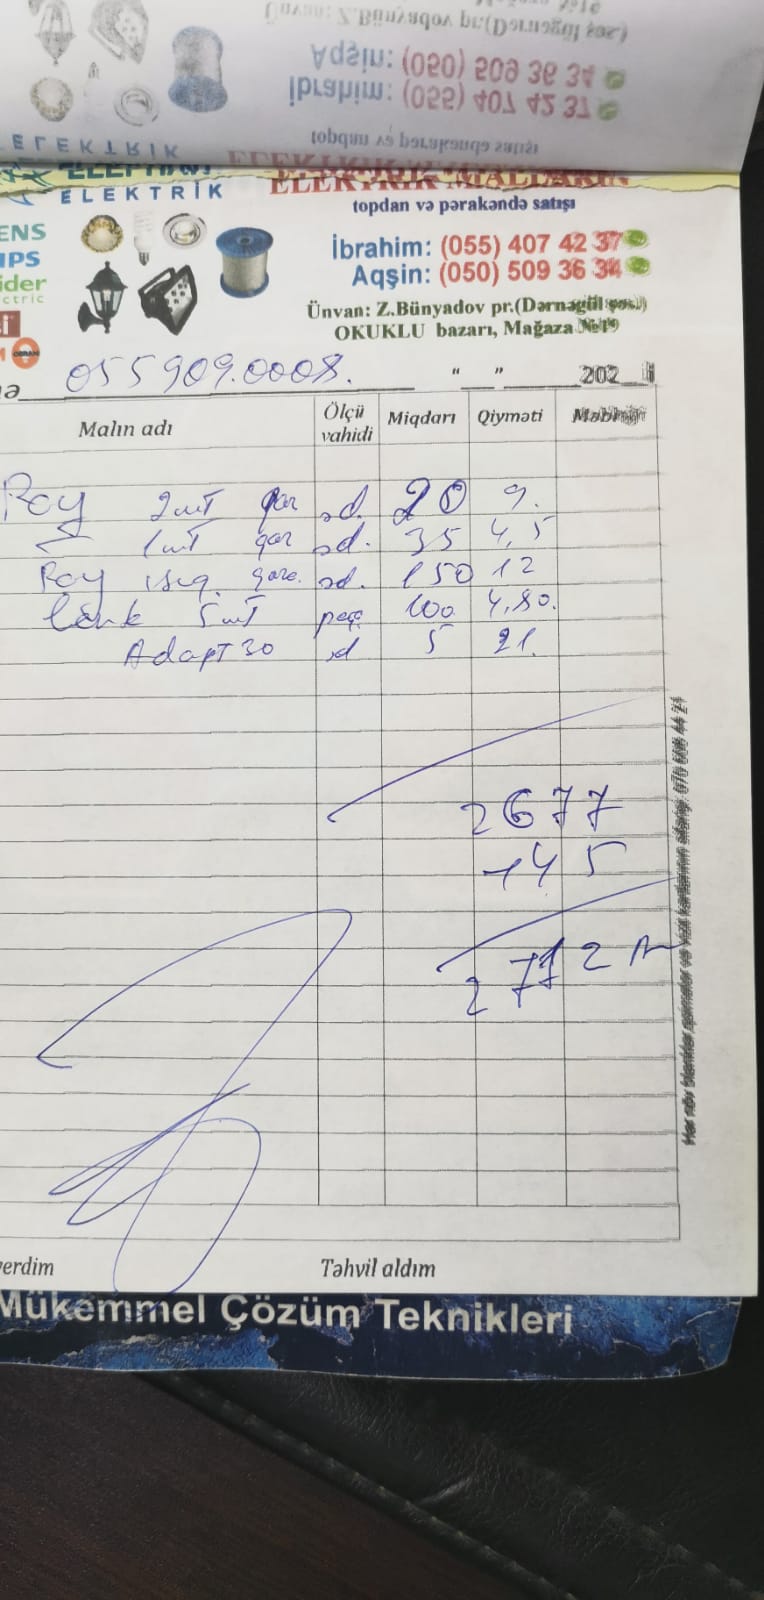 Ünvan: Z.Bünyadov pr.(Dərnəgül şos.)
Aqşin: (050) 509 36 34
İbrahim: (055) 407 42 37
topdan və pərakəndə satışı
ELEKTRİK
ELEKTRİK
ELEKTRİK MALLARIN
topdan və pərakəndə satışı
ENS
IPS
ider
ctric
OSRAM
İbrahim: (055) 407 42 37
Aqşin: (050) 509 36 34
Ünvan: Z.Bünyadov pr.(Dərnəgül şos.)
OKUKLU bazarı, Mağaza №19
055 909.0008. “ ” 202
Malın adı Ölçü vahidi Miqdarı Qiyməti Məbləği
Roy 2mt qar əd. 20 9.
1mt qar əd. 35 4,5
Roy işıq. qara. əd. 150 12
lent 5mt peç 100 4,80.
Adapt 30 əd 5 21.
2677
145
2712
verdim Təhvil aldım
Hər növ blanklar, qaimələr və vizit kartlarının sifarişi: 070 668 44 21
Mükemmel Çözüm Teknikleri